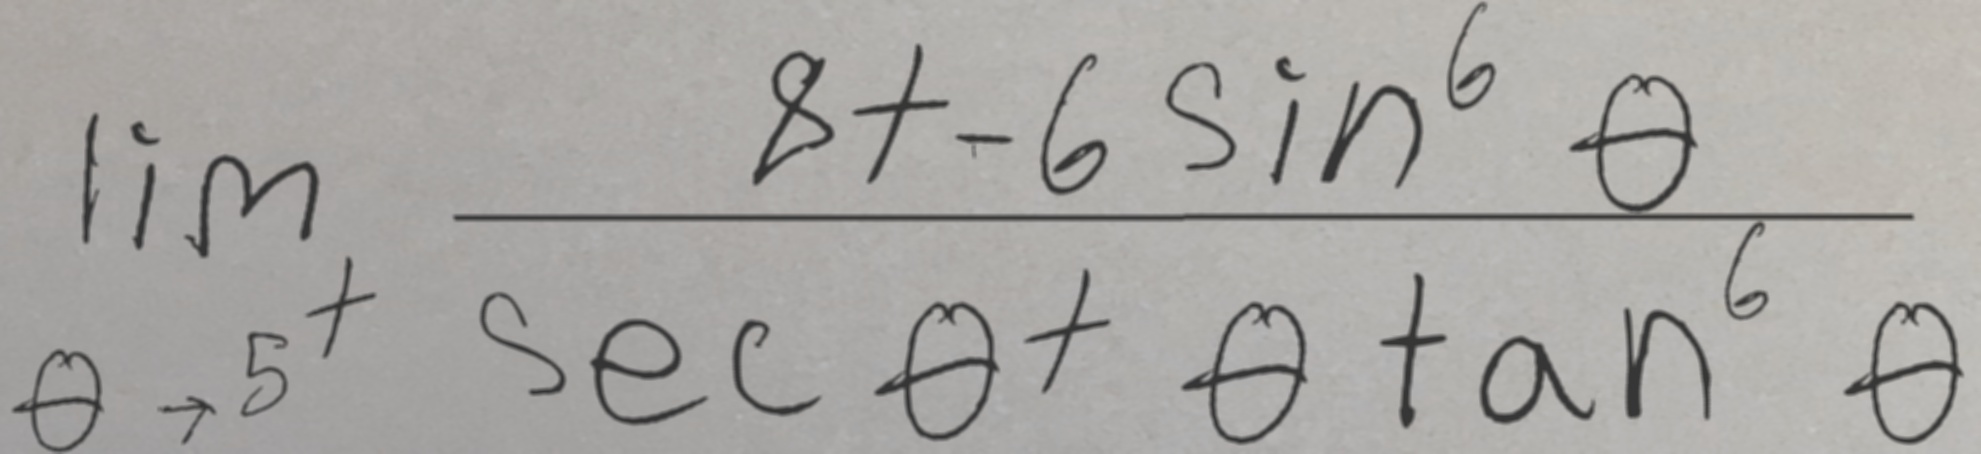 \lim_{\theta \to 5^+} \frac{8 + -6 \sin^6 \theta}{\sec \theta + \theta \tan^6 \theta}